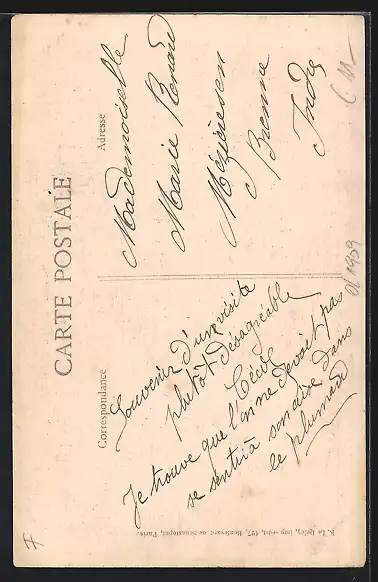 CARTE POSTALE
Correspondance
Adresse
Souvenir d'une visite
plutôt désagréable
Cécile
Je trouve que l'on ne devait pas
se sentir à son aise dans
le plumard
Mademoiselle
Marie Renard
Mézières en
Brenne
Indre
01 1909
E. Le Deley, imp.-édit., 127, Boulevard de Sébastopol, Paris.